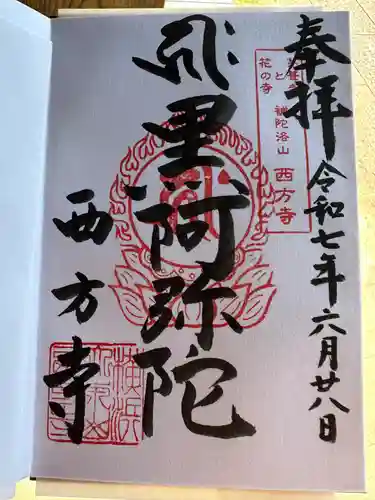 奉拝
令和七年六月廿八日
と
花の寺
補陀洛山
西方寺
黒阿弥陀
西方寺